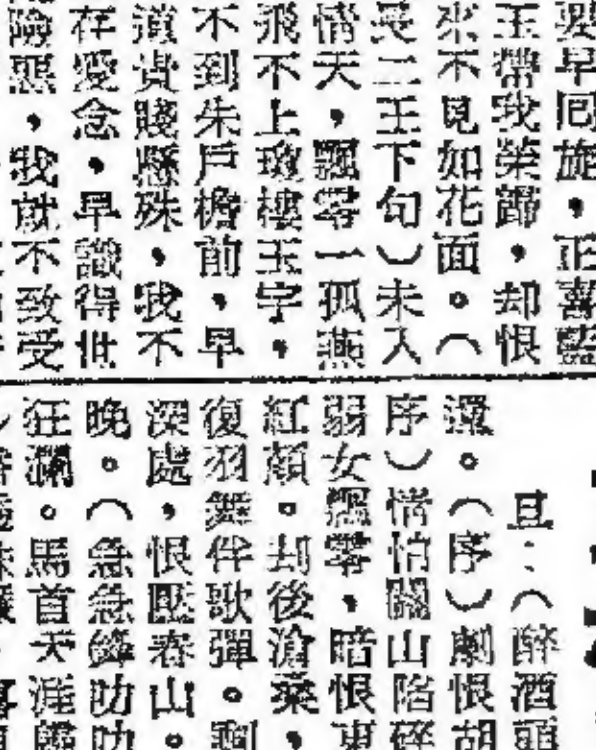 早回旋，正喜藍
玉帶我榮歸，却恨
來不見如花面。（
長二王下句）未入
情天，飄零一孤燕
飛不上瓊樓玉宇，
不到朱戶檐前，早
貴賤懸殊，我不
存愛念，早識得世
險惡，我就不致受
旦：（醉酒頭
還。（序）劇恨胡
序）情怕關山陷碎
弱女飄零，暗恨東
紅顏。刦後滄桑，
復羽舞伴歌彈。剩
深處，恨壓春山。
晚。（急急鋒）助助
狂瀾。馬首天涯歸